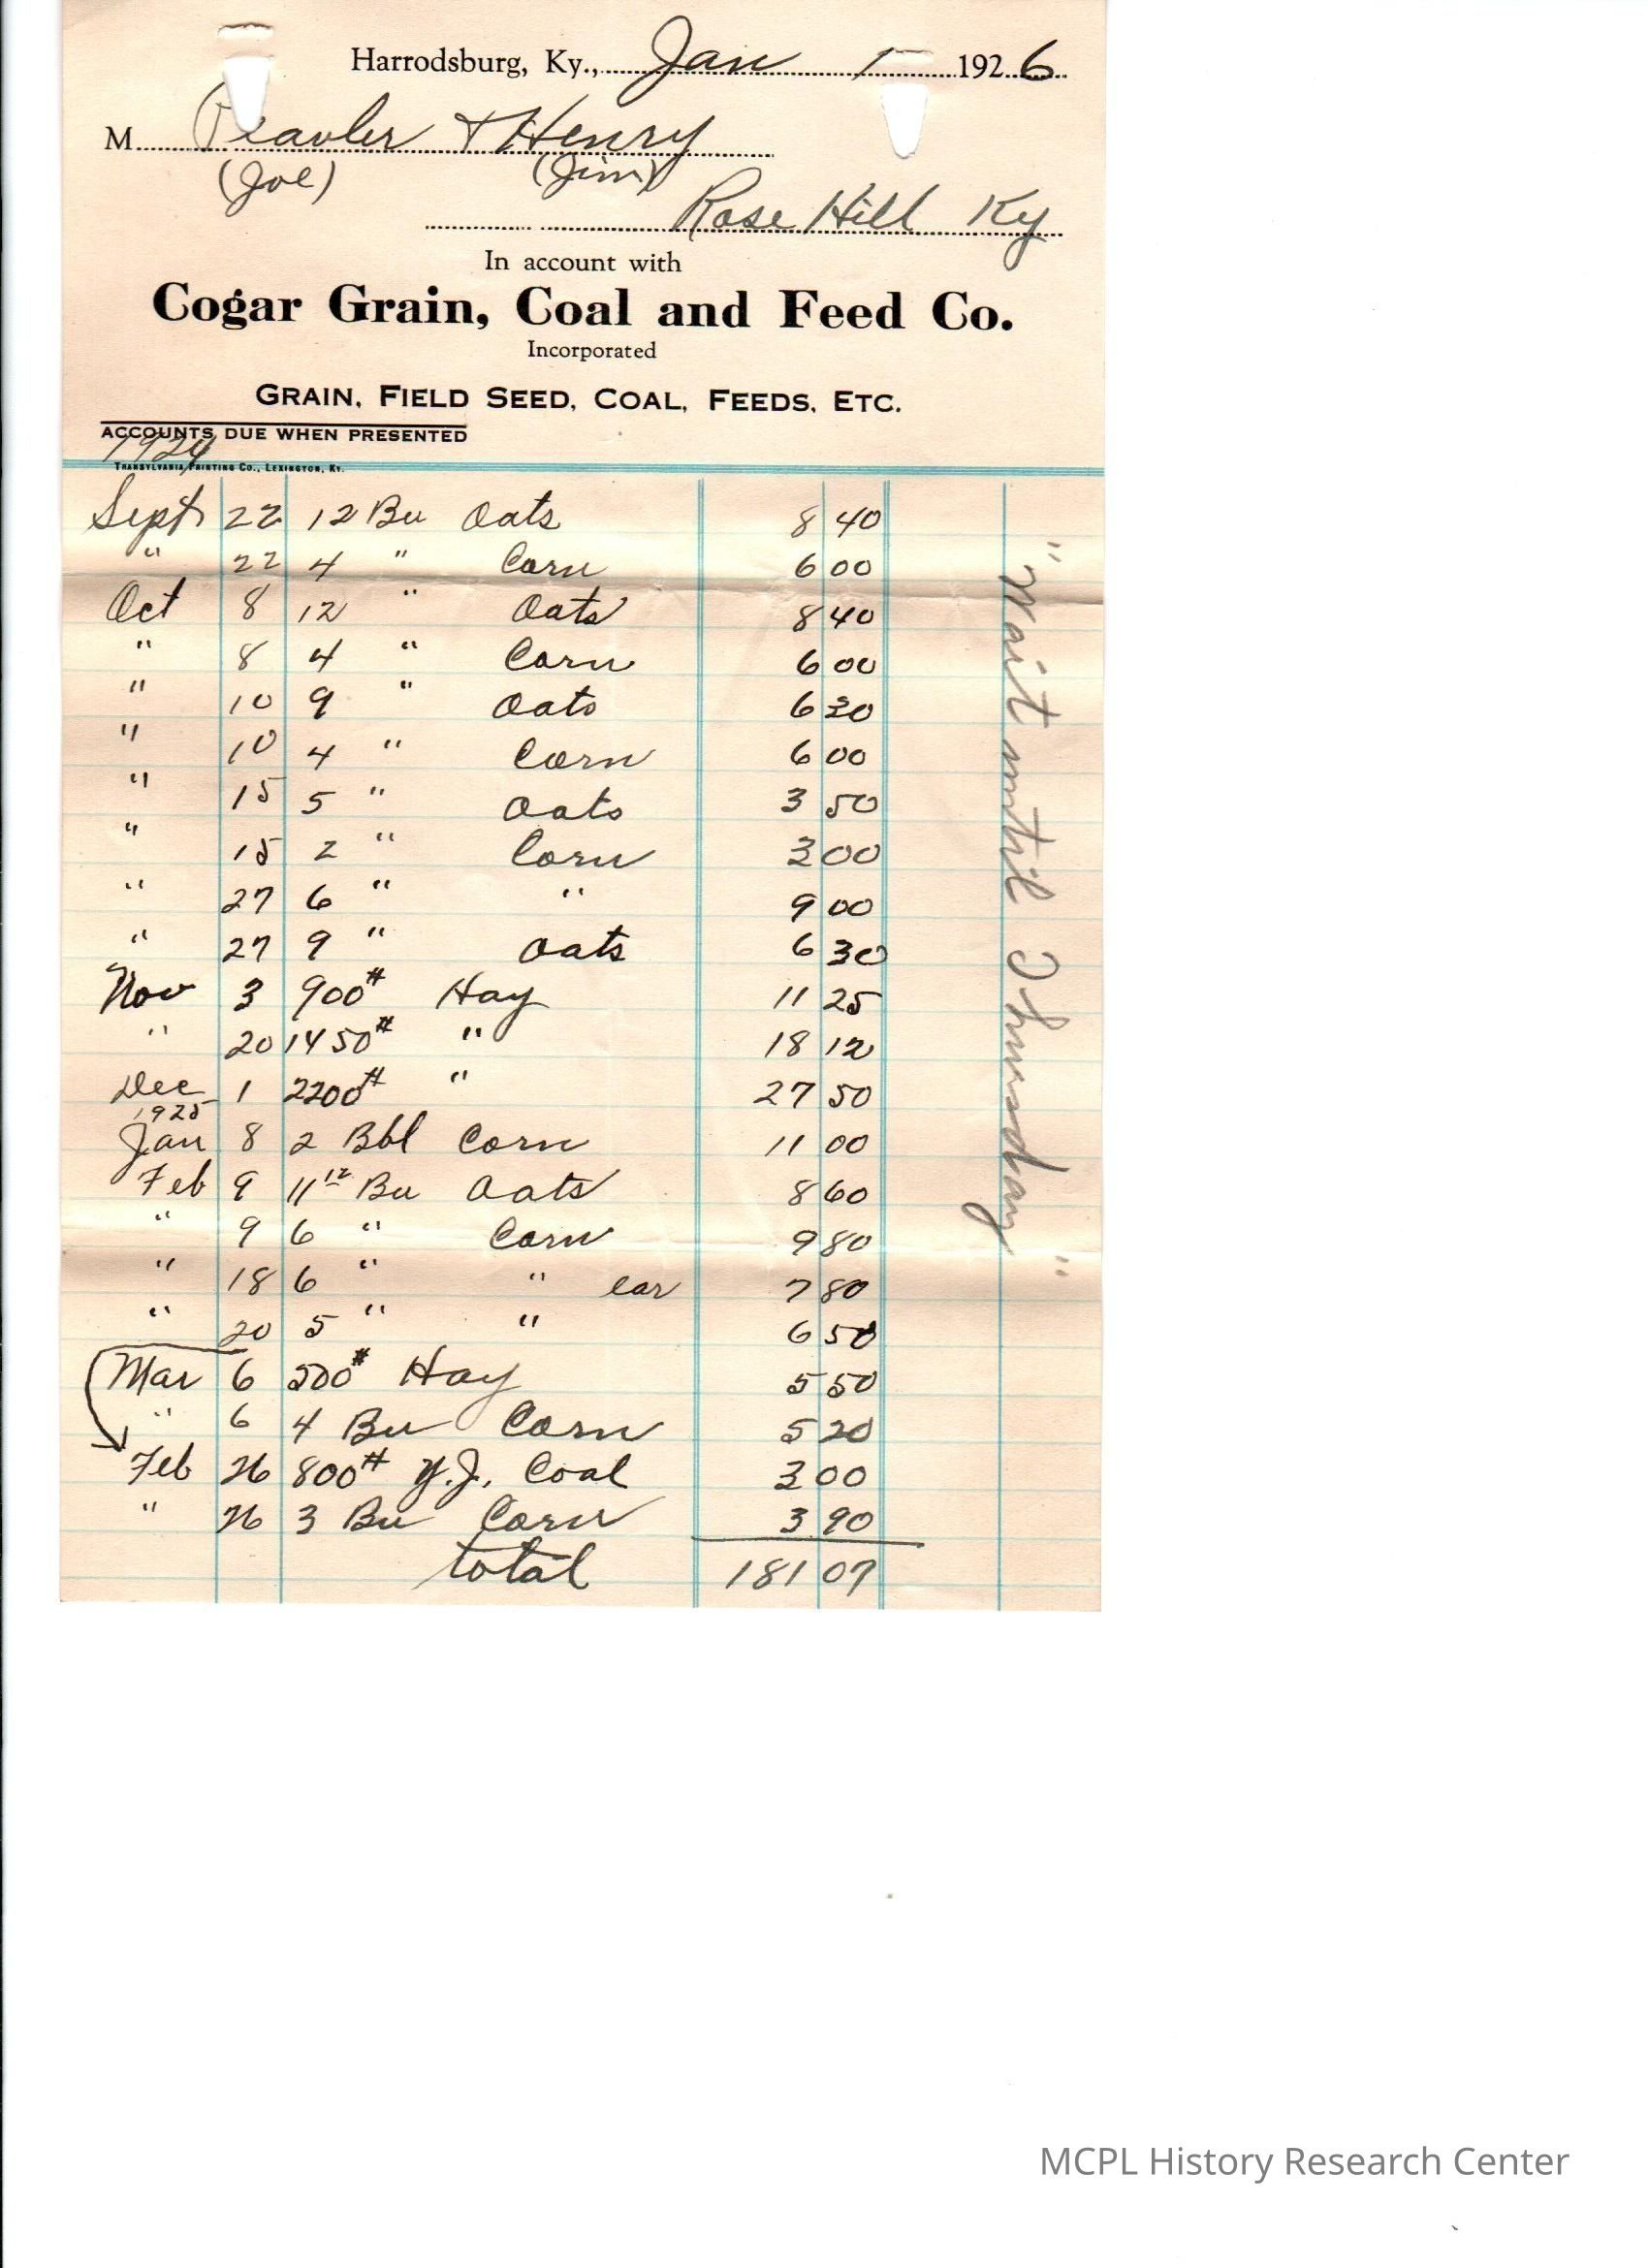 Harrodsburg, Ky., Jan 1 1926
M Peavler & Henry
(Joe) (Jim)
Rose Hill Ky
In account with
Cogar Grain, Coal and Feed Co.
Incorporated
GRAIN, FIELD SEED, COAL, FEEDS, ETC.
ACCOUNTS DUE WHEN PRESENTED
1924
TRANSYLVANIA PRINTING CO., LEXINGTON, KY.
Sept 22 12 Bu Oats 8 40
" 22 4 " Corn 6 00
Oct 8 12 " Oats 8 40
" 8 4 " Corn 6 00
" 10 9 " Oats 6 30
" 10 4 " Corn 6 00
" 15 5 " Oats 3 50
" 15 2 " Corn 3 00
" 27 6 " " 9 00
" 27 9 " Oats 6 30
Nov 3 900# Hay 11 25
" 20 1450# " 18 12
Dec 1 2200# " 27 50
1925
Jan 8 2 Bbl Corn 11 00
Feb 9 11 12 Bu Oats 8 60
" 9 6 " Corn 9 80
" 18 6 " " ear 7 80
" 20 5 " " 6 50
Mar 6 500# Hay 5 50
" 6 4 Bu Corn 5 20
Feb 26 800# Y.J. Coal 3 00
" 26 3 Bu Corn 3 90
total 181 07
"Wait until Thursday"
MCPL History Research Center